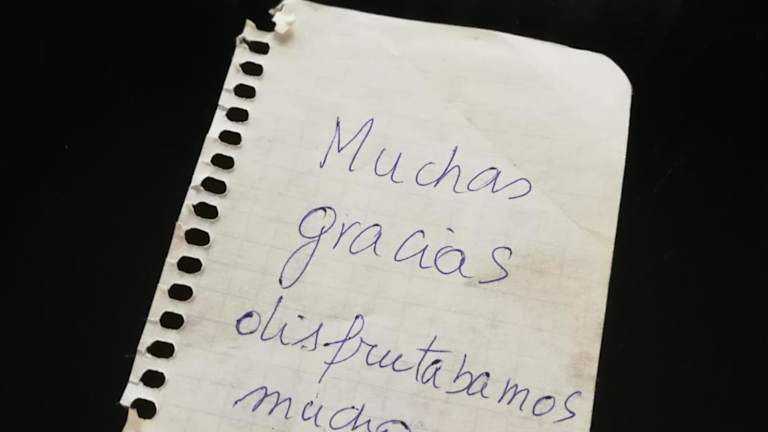 Muchas
gracias
disfrutabamos
mucho